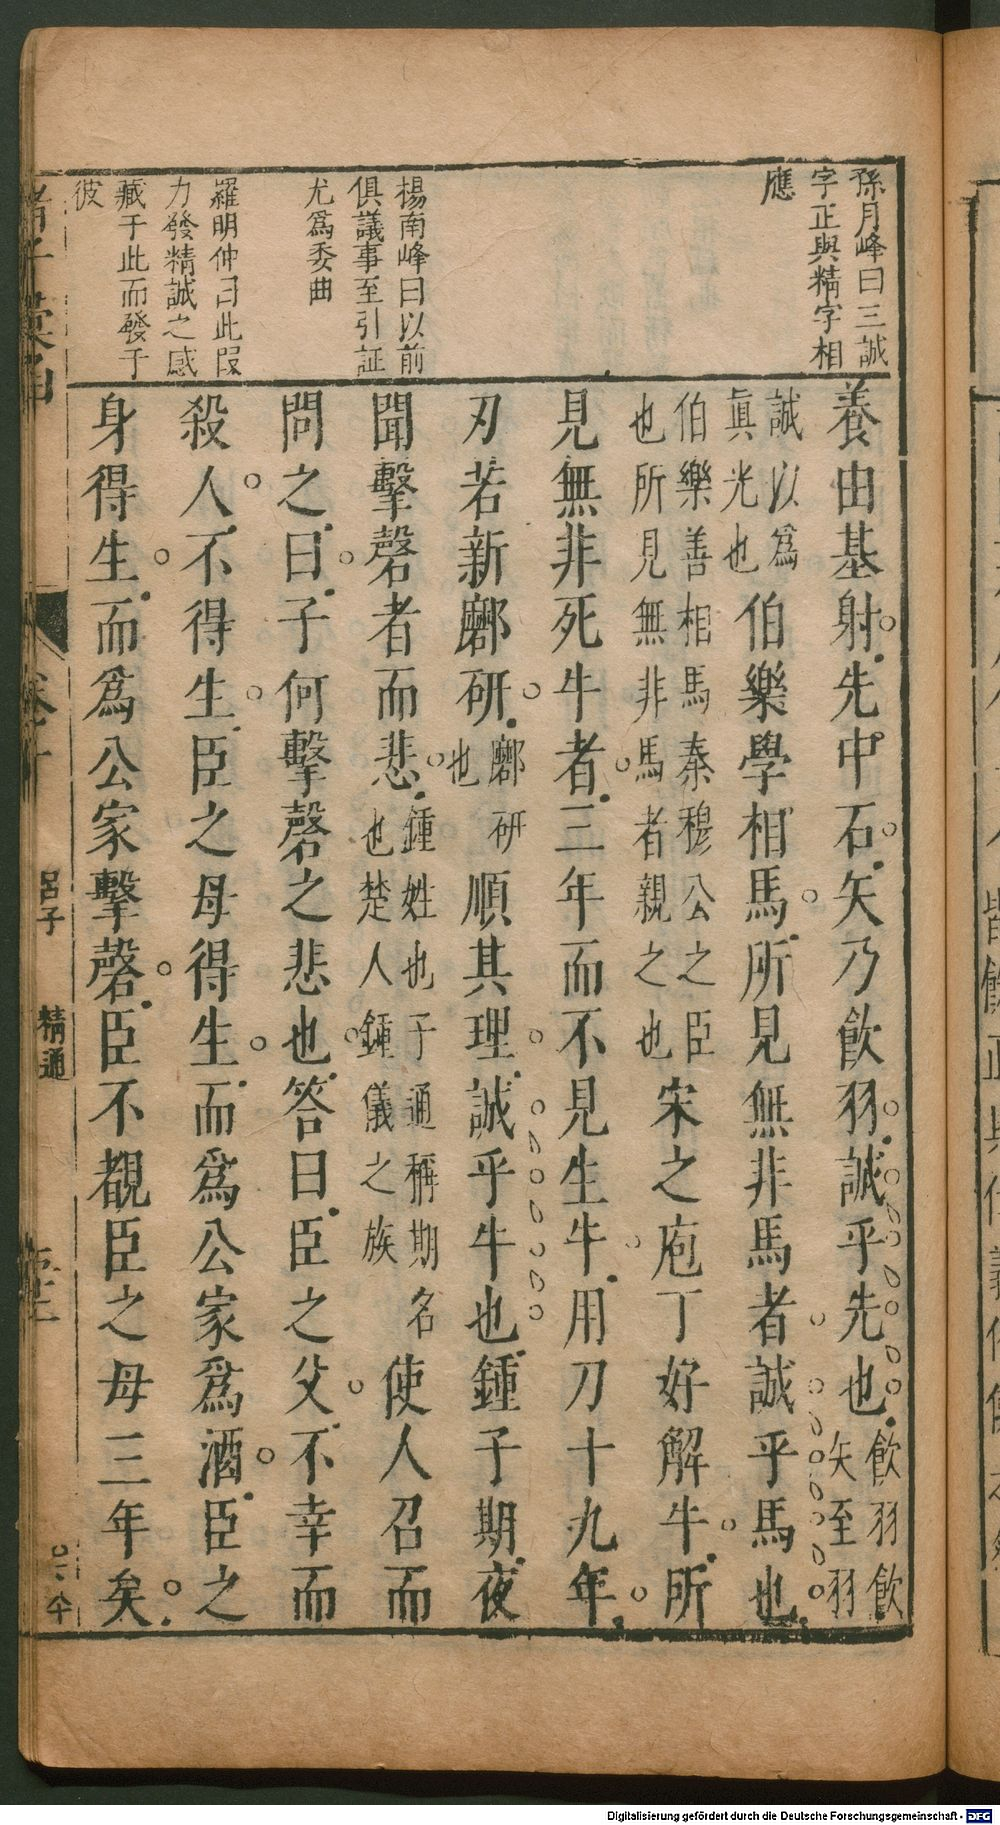 孫月峰曰三誠
字正與精字相
應
楊南峰曰以前
俱議事至引証
尤爲委曲
羅明仲曰此叚
力發精誠之感
藏于此而發于
彼
養由基射先中石矢乃飲羽誠乎先也飲羽飲矢至羽
誠以爲眞光也伯樂學相馬所見無非馬者誠乎馬也
伯樂善相馬秦穆公之臣也所見無非馬者親之也宋之庖丁好解牛所
見無非死牛者三年而不見生牛用刀十九年
刃若新磨研磨研也順其理誠乎牛也鍾子期夜
聞擊磬者而悲鍾姓也子通稱期名也楚人鍾儀之族使人召而
問之曰子何擊磬之悲也答曰臣之父不幸而
殺人不得生臣之母得生而爲公家爲酒臣之
身得生而爲公家擊磬臣不覩臣之母三年矣
卷十
呂子
精通
Digitalisierung gefördert durch die Deutsche Forschungsgemeinschaft - DFG